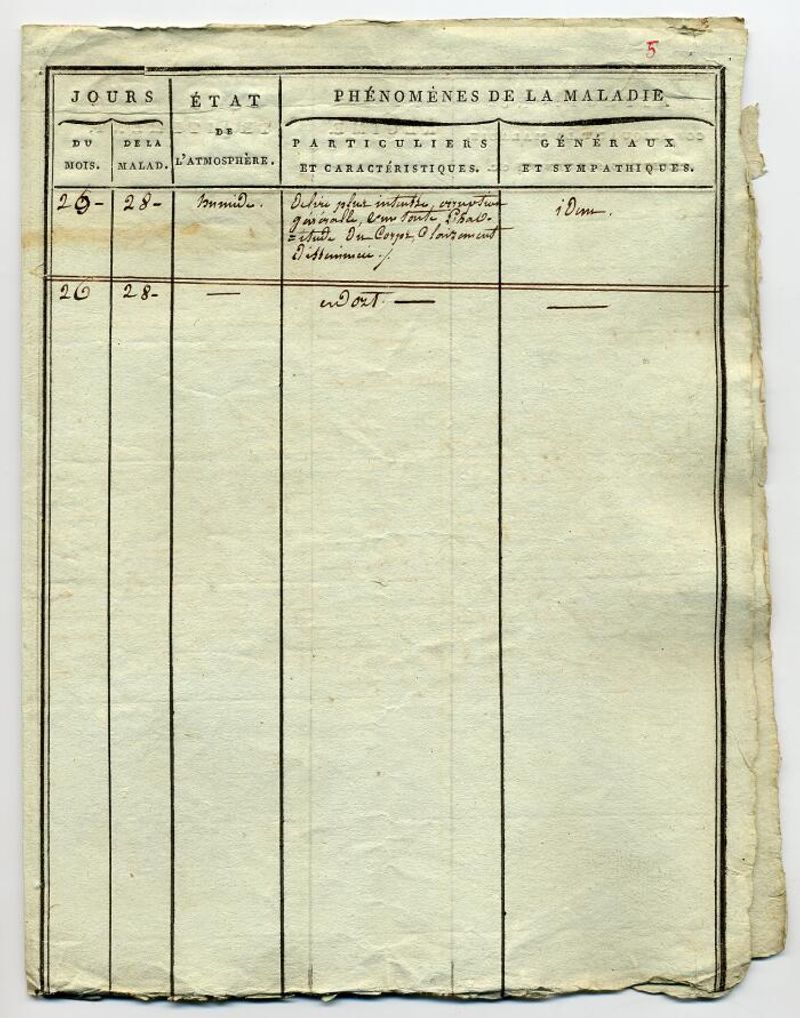 5
JOURS
ÉTAT
PHÉNOMÈNES DE LA MALADIE
DE
DU
DE LA
PARTICULIERS
GÉNÉRAUX
MOIS.
MALAD.
L'ATMOSPHÈRE.
ET CARACTÉRISTIQUES.
ET SYMPATHIQUES.
26 -
28 -
humide.
Delire plus intense, erruption
générale, sur toute l'hab-
=itude du Corps, Clairement
Disseminée ./
idem.
26
28 -
—
—
—